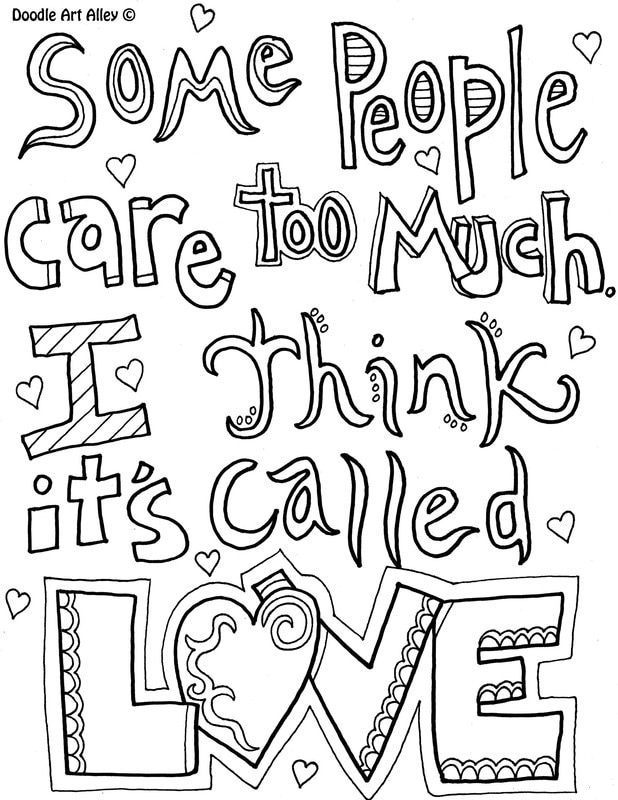 Doodle Art Alley ©
Some People
care too Much.
I Think
it's called
LOVE